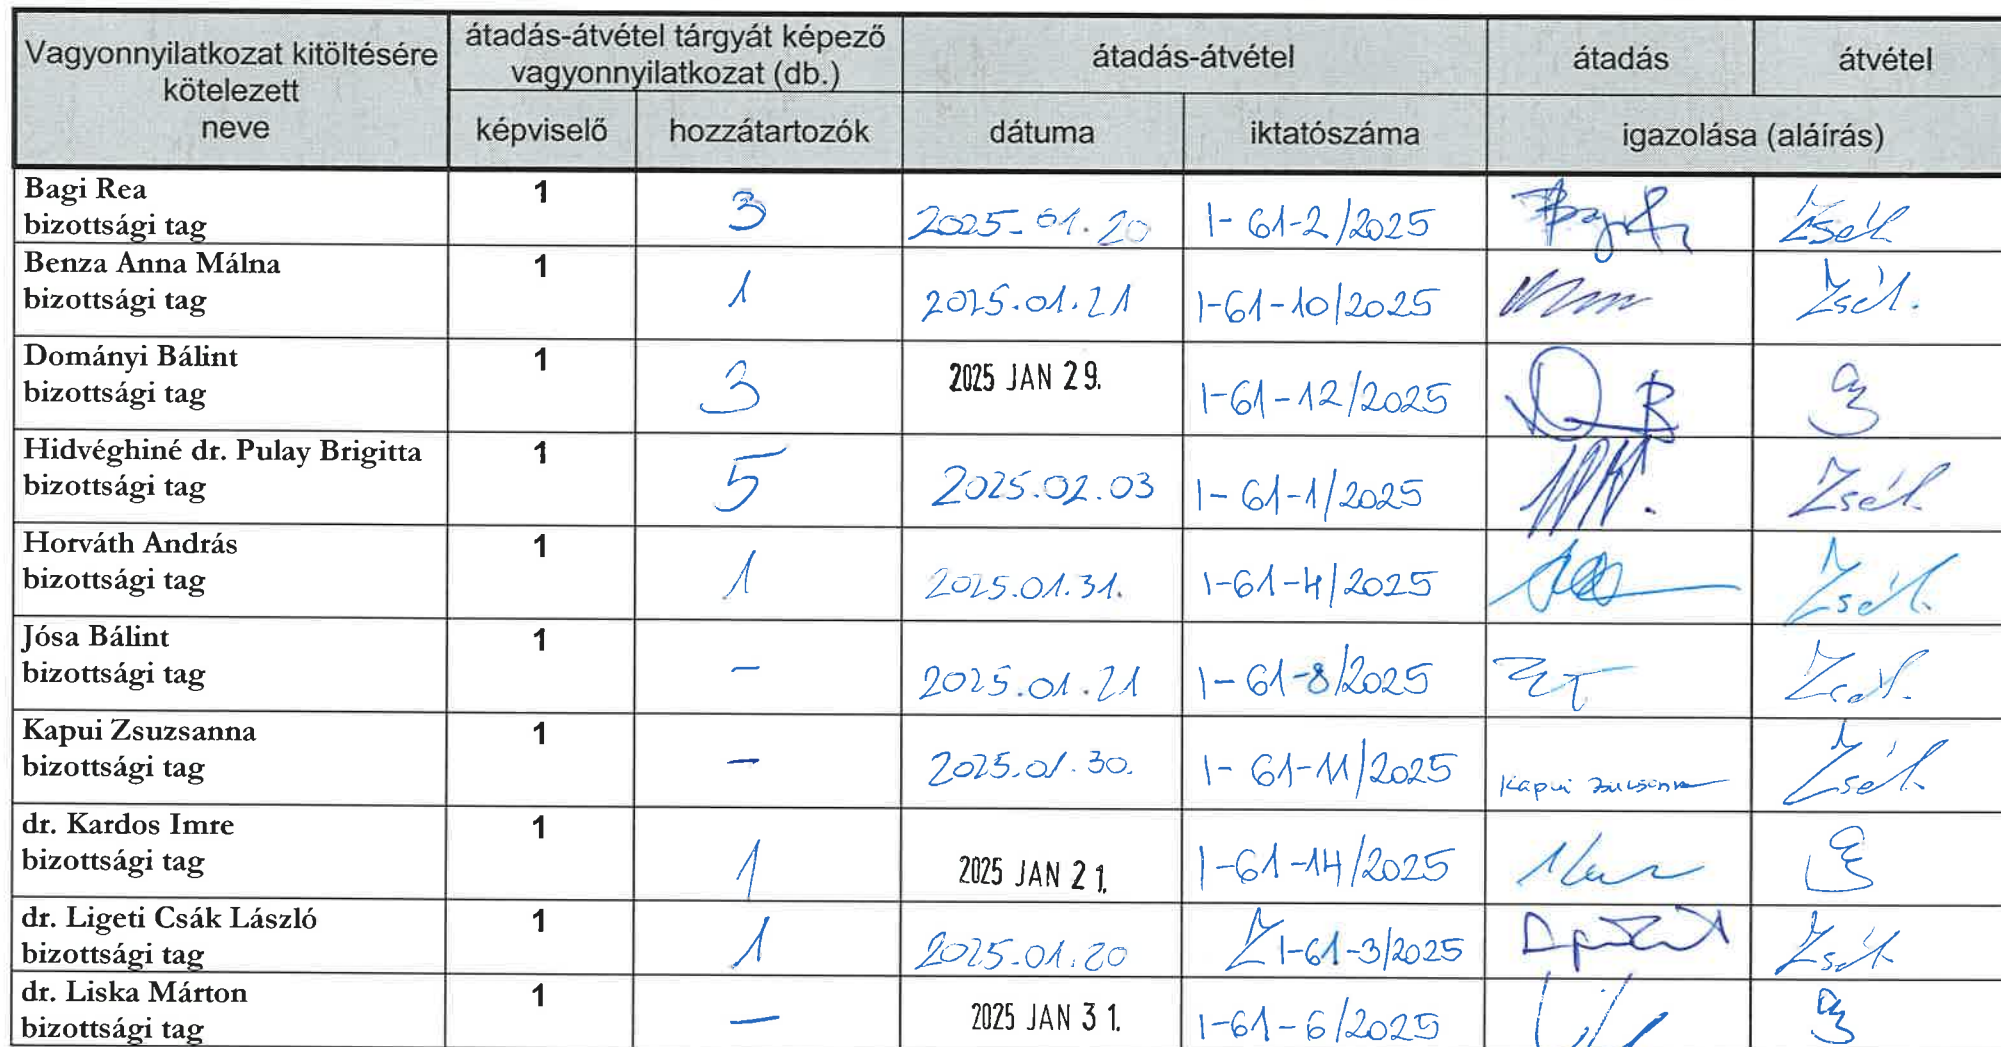 Vagyonnyilatkozat kitöltésére
kötelezett
neve
átadás-átvétel tárgyát képező
vagyonnyilatkozat (db.)
átadás-átvétel
átadás
átvétel
képviselő
hozzátartozók
dátuma
iktatószáma
igazolása (aláírás)
Bagi Rea
bizottsági tag
1
3
2025-01.20
1-61-2/2025
Zsél
Benza Anna Málna
bizottsági tag
1
1
2025.01.21
1-61-10/2025
Zsél.
Dományi Bálint
bizottsági tag
1
3
2025 JAN 29.
1-61-12/2025
Hidvéghiné dr. Pulay Brigitta
bizottsági tag
1
5
2025.02.03
1-61-1/2025
Zsél.
Horváth András
bizottsági tag
1
1
2025.01.31.
1-61-4/2025
Zsél.
Jósa Bálint
bizottsági tag
1
-
2025.01.21
1-61-8/2025
Zsél.
Kapui Zsuzsanna
bizottsági tag
1
-
2025.01.30.
1-61-11/2025
Kapui Zsuzsanna
Zsél.
dr. Kardos Imre
bizottsági tag
1
1
2025 JAN 21.
1-61-14/2025
dr. Ligeti Csák László
bizottsági tag
1
1
2025.01.20
1-61-3/2025
Zsél
dr. Liska Márton
bizottsági tag
1
-
2025 JAN 31.
1-61-6/2025